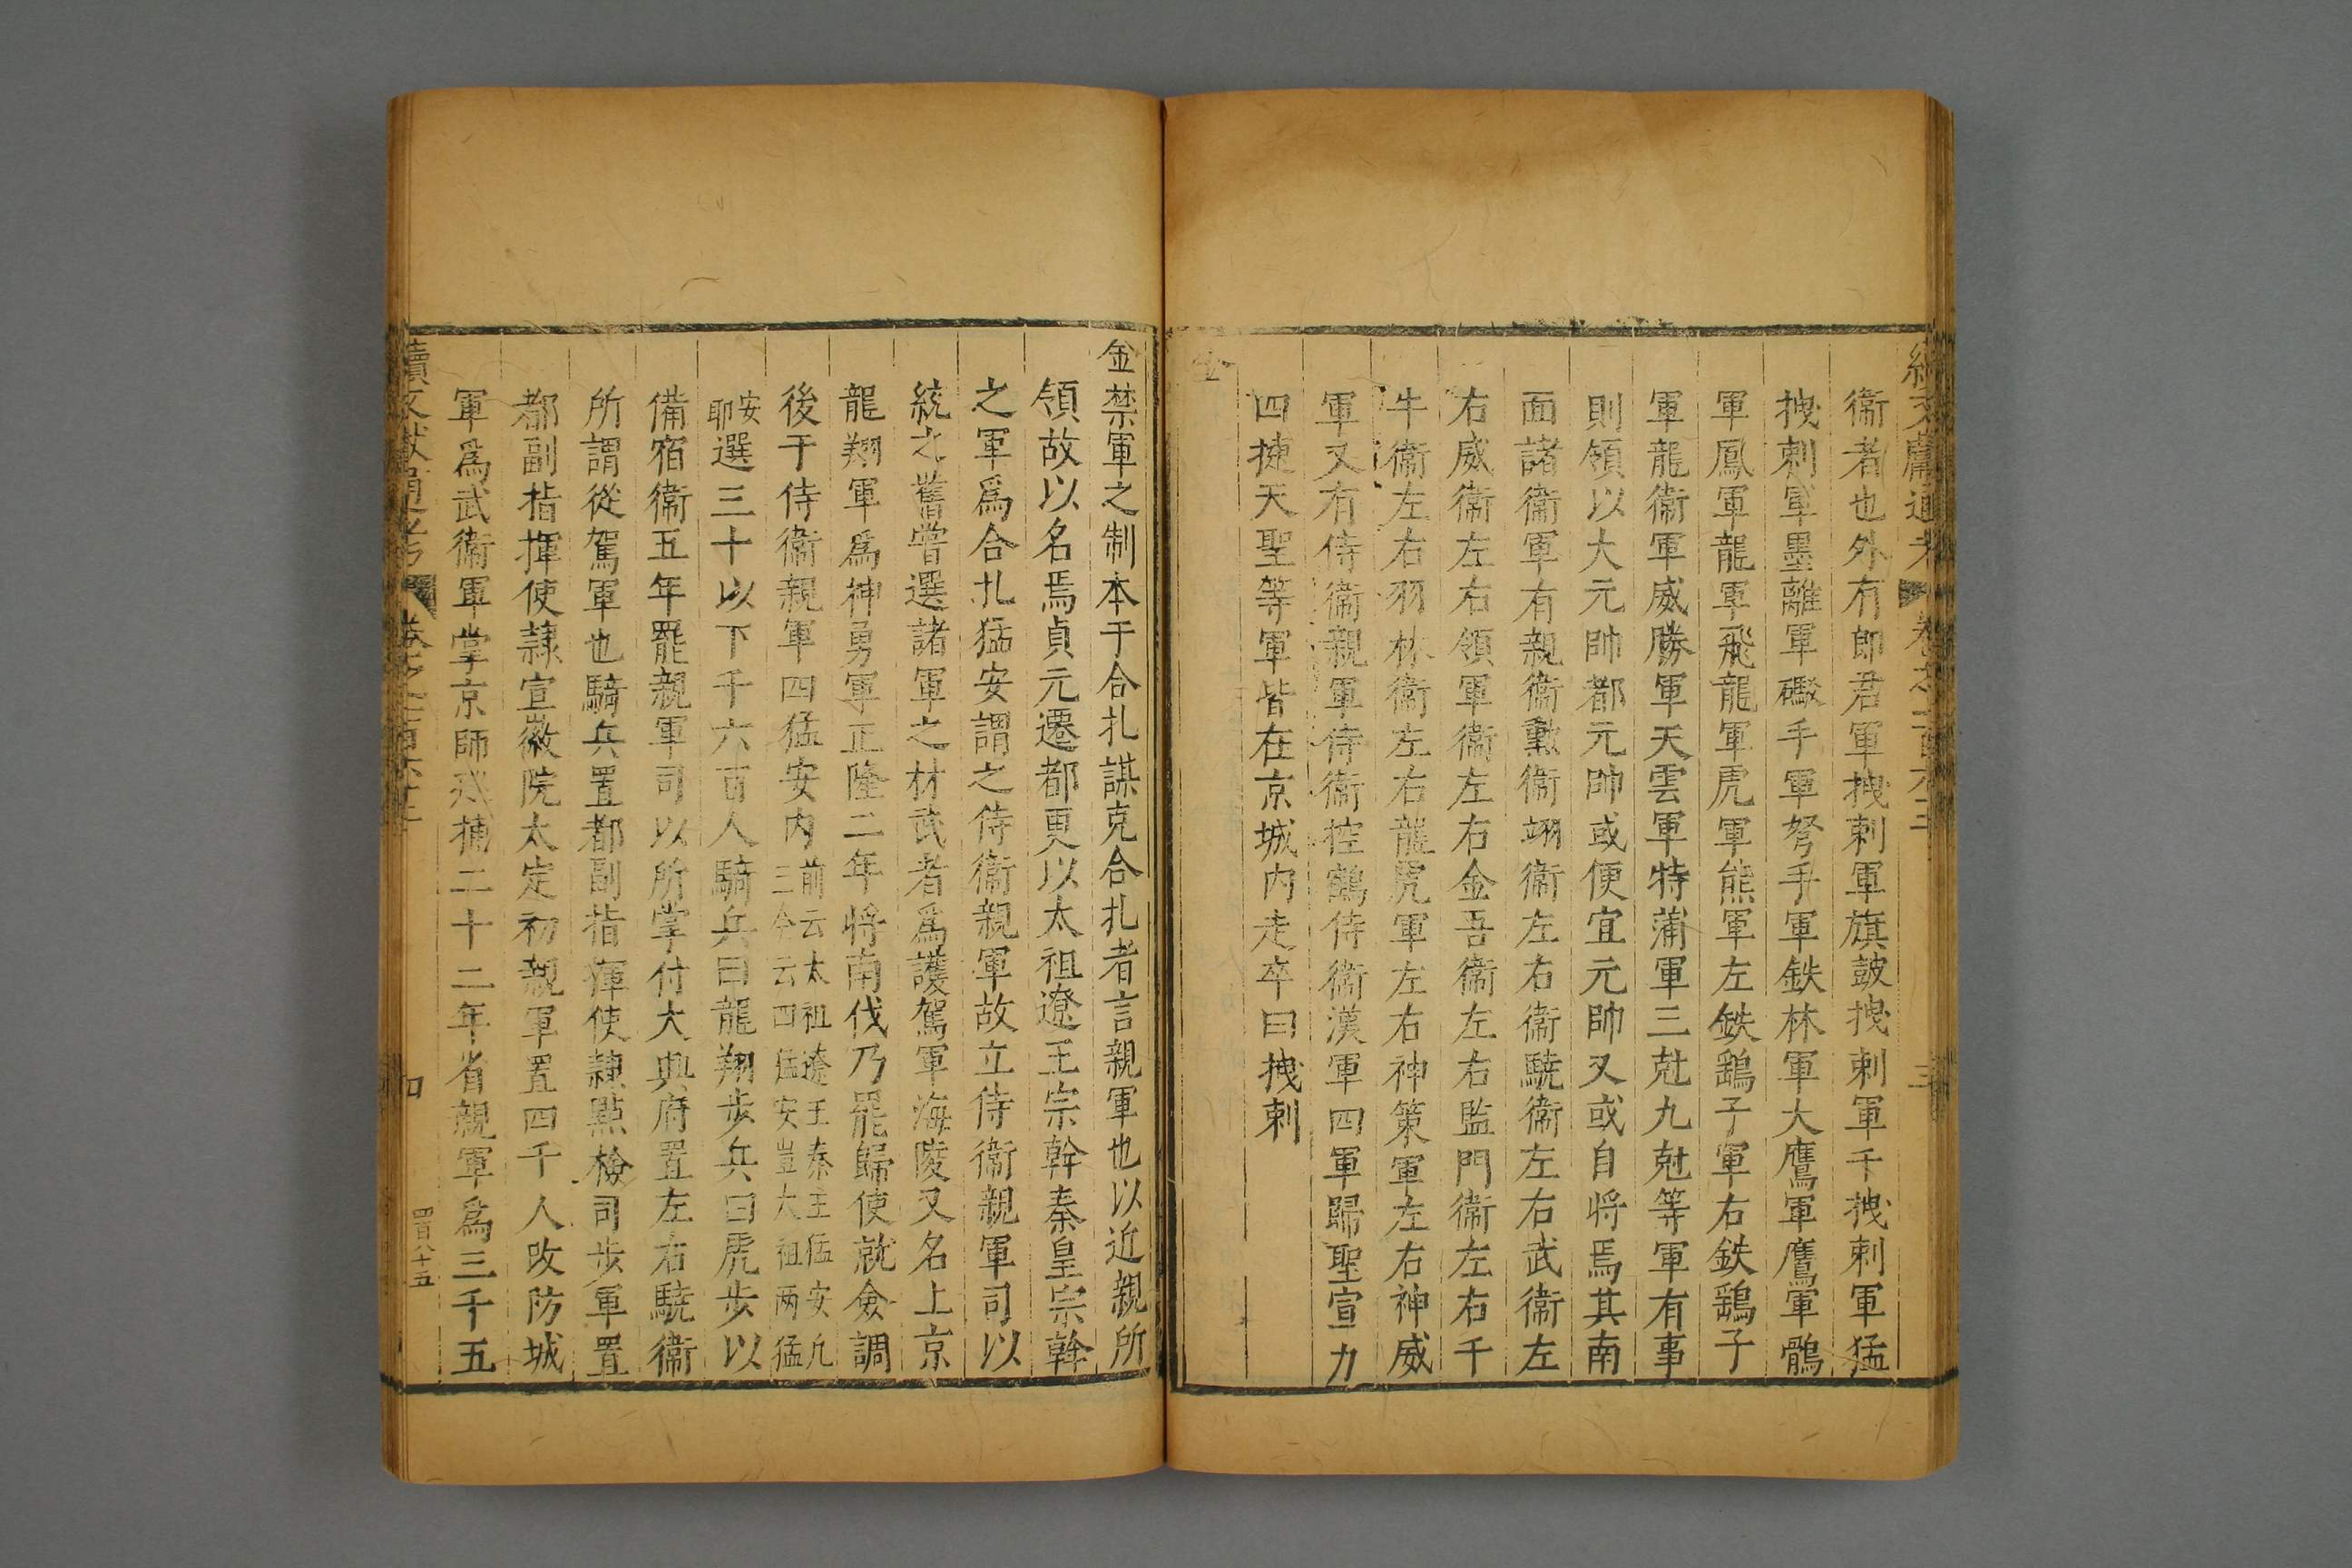 衞者也外有郎君軍拽剌軍旗鼓拽剌軍千拽剌軍猛
拽剌軍墨離軍礮手軍弩手軍鉄林軍大鷹軍鷹軍鶻
軍鳳軍龍軍飛龍軍虎軍熊軍左鉄鷂子軍右鉄鷂子
軍龍衞軍威勝軍天雲軍特蒲軍三尅九尅等軍有事
則領以大元帥都元帥或便宜元帥又或自将焉其南
面諸衞軍有親衞勳衞翊衞左右衞驍衞左右武衞左
右威衞左右領軍衞左右金吾衞左右監門衞左右千
牛衞左右羽林衞左右龍虎軍左右神策軍左右神威
軍又有侍衞親軍侍衞控鶴侍衞漢軍四軍歸聖宣力
四捷天聖等軍皆在京城内走卒曰拽剌
金
金禁軍之制本于合扎謀克合扎者言親軍也以近親所
領故以名焉貞元遷都更以太祖遼王宗幹秦皇宗幹
之軍爲合扎猛安謂之侍衞親軍故立侍衞親軍司以
統之舊嘗選諸軍之材武者爲護駕軍海陵又名上京
龍翔軍爲神勇軍正隆二年将南伐乃罷歸使就僉調
後于侍衞親軍四猛安内前云太祖遼王秦王猛安凡
三今云四猛安豈大祖两猛
安
耶選三十以下千六百人騎兵曰龍翔步兵曰虎步以
備宿衞五年罷親軍司以所掌付大興府置左右驍衞
所謂從駕軍也騎兵置都副指揮使隷點檢司步軍置
都副指揮使隷宣徽院太定初親軍置四千人改防城
軍爲武衞軍掌京師巡捕二十二年省親軍爲三千五
續文獻通考
四
四百八十五